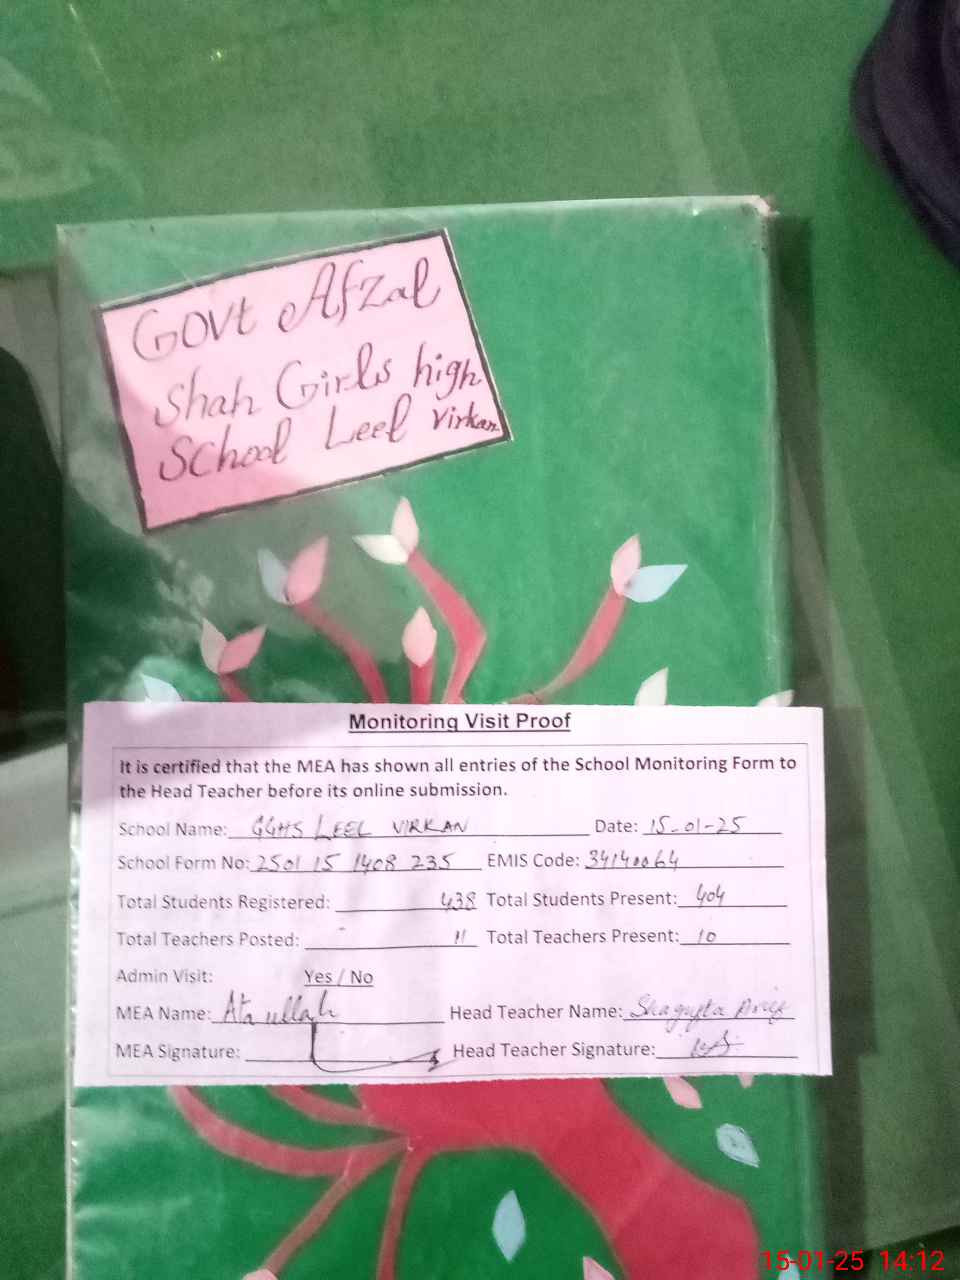 Govt Afzal
Shah Girls high
School Leel Virkan
Monitoring Visit Proof
It is certified that the MEA has shown all entries of the School Monitoring Form to
the Head Teacher before its online submission.
School Name: GGHS LEEL VIRKAN Date: 15-01-25
School Form No: 2501 15 1408 235 EMIS Code: 34140064
Total Students Registered: 438 Total Students Present: 404
Total Teachers Posted: 11 Total Teachers Present: 10
Admin Visit: Yes / No
MEA Name: Ata ullah Head Teacher Name: Shagufta
MEA Signature: Head Teacher Signature:
15-01-25 14:12